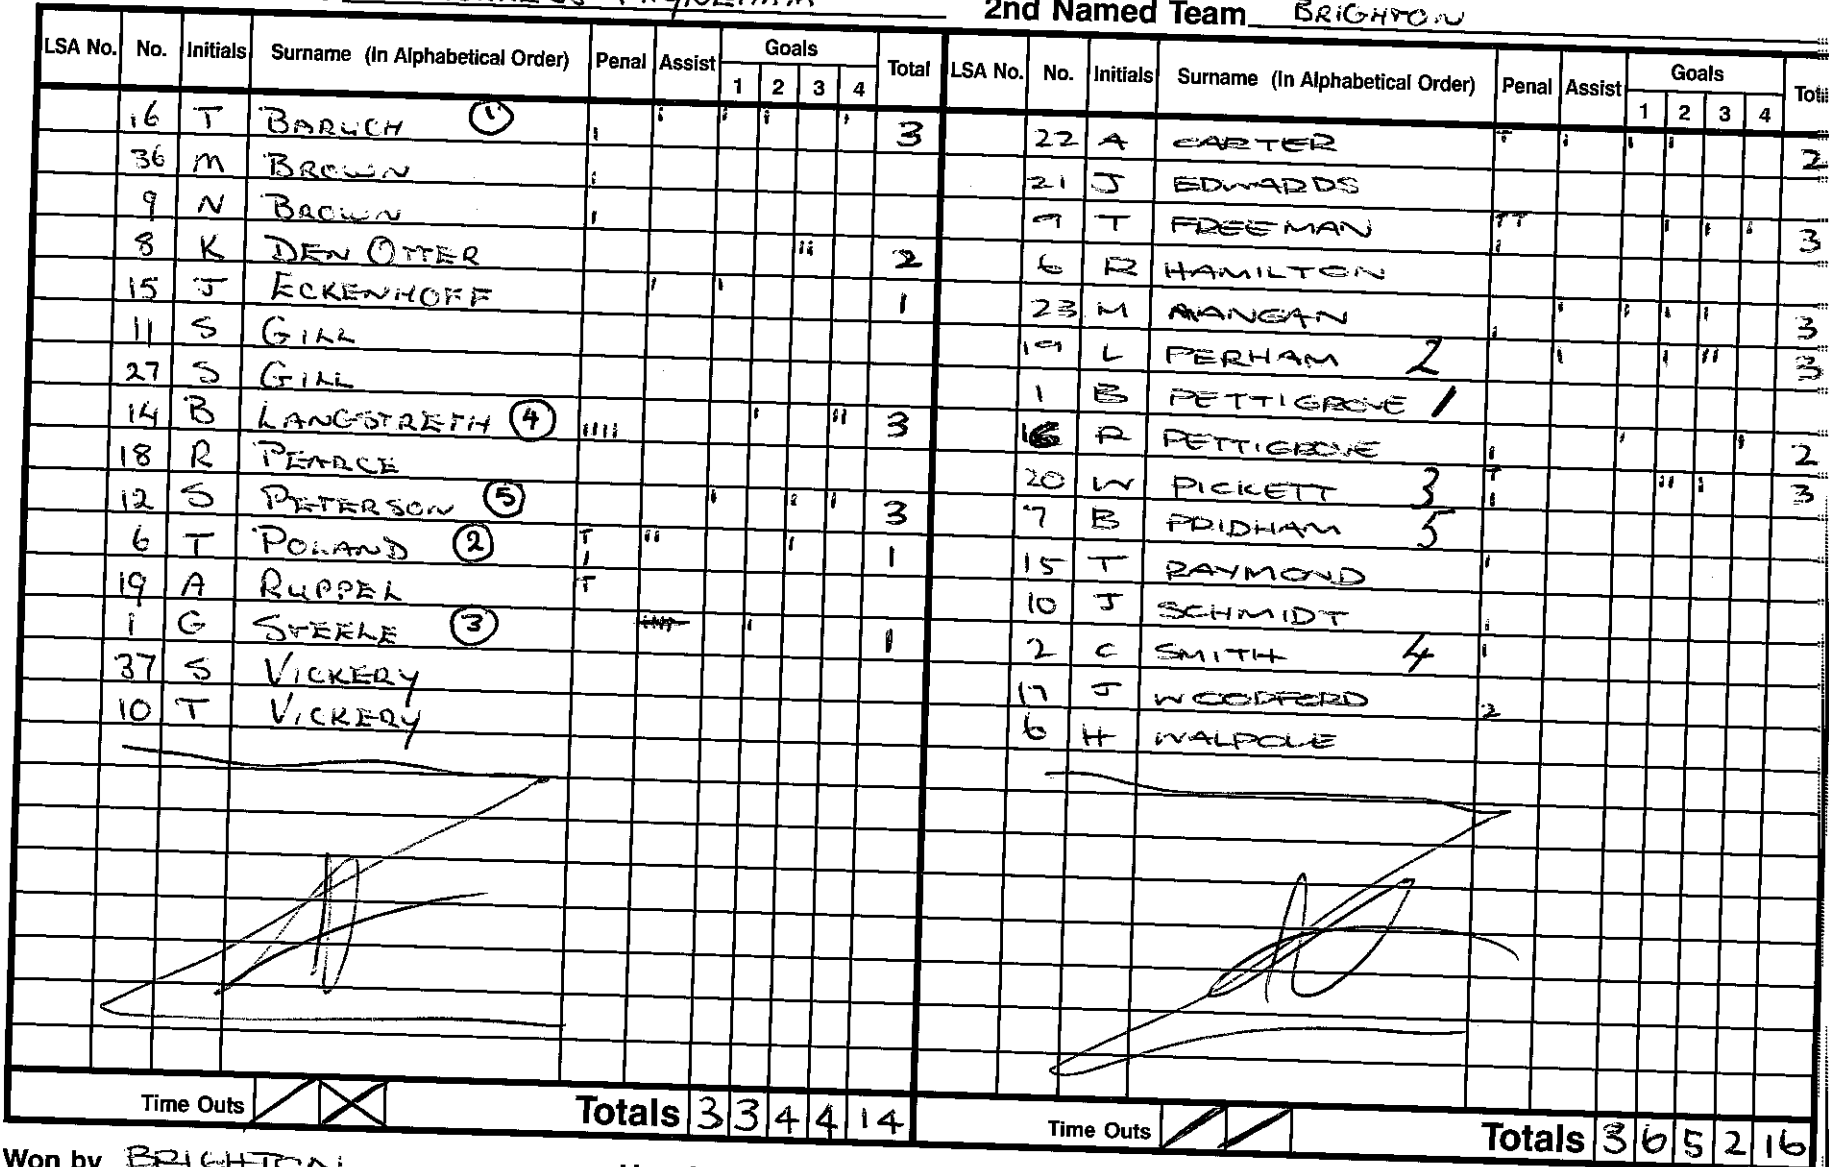 2nd Named Team BRIGHTON
LSA No. No. Initials Surname (In Alphabetical Order) Penal Assist Goals 1 2 3 4 Total
16 T BARUCH 1 3
36 M BROWN
9 N BROWN
8 K DEN OTTER 2
15 J ECKENHOFF 1
11 S GILL
27 S GILL
14 B LANGSTRETH 4 IIII 3
18 R PEARCE
12 S PETERSON 5 3
6 T POLAND 2 T 1
19 A RUPPEL T
1 G STEELE 3 1
37 S VICKERY
10 T VICKERY
Time Outs
Totals 3 3 4 4 14
LSA No. No. Initials Surname (In Alphabetical Order) Penal Assist Goals 1 2 3 4
22 A CARTER T 2
21 J EDWARDS
9 T FREEMAN TT 3
6 R HAMILTON
23 M MANGAN 3
19 L PERHAM 2 3
1 B PETTIGROVE 1
16 R PETTIGROVE 2
20 W PICKETT 3 T 3
7 B PRIDHAM 5
15 T RAYMOND
10 J SCHMIDT
2 C SMITH 4
17 J WOODFORD 2
6 H WALPOLE
Time Outs
Totals 3 6 5 2 16
Won by BRIGHTON